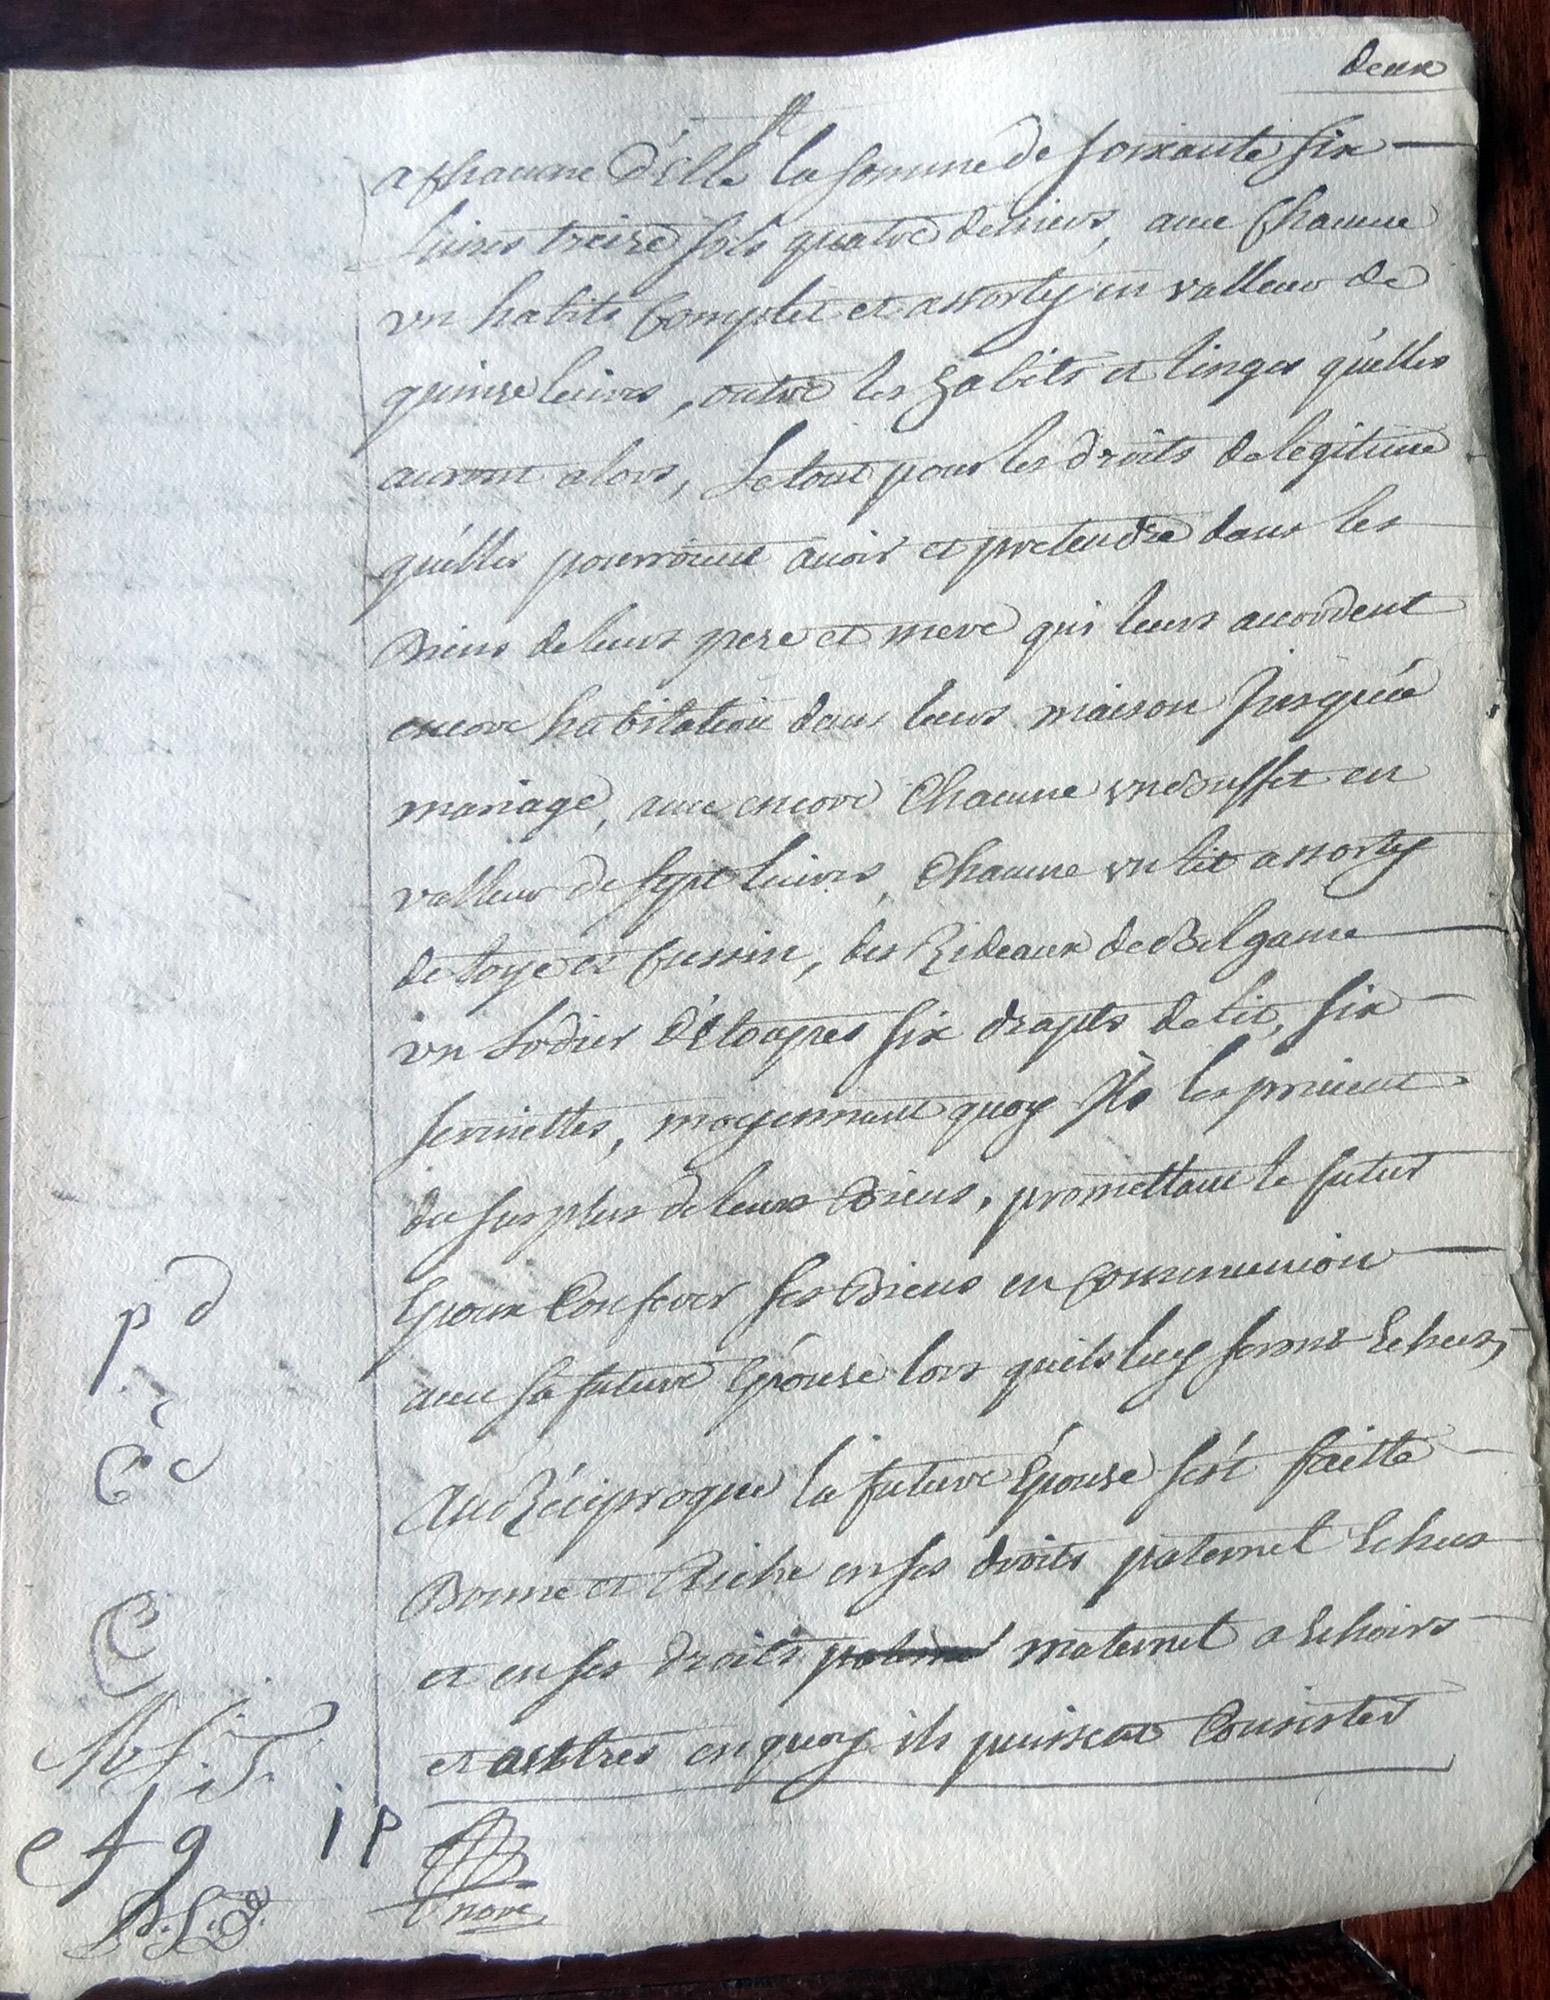 deux
a chacune d'elle la somme de soixante six
livres treize sols quatre deniers, avec chacune
un habits complet et assorty en valleur de
quinze livres, outre les habits et linges qu'elles
auront alors, le tout pour les droits de legitime
qu'elles pourroient avoir et pretendre dans les
biens de leurs pere et mere qui leurs accordent
encore habitation dans leurs maison jusquéà
mariage, avec encore chacune un coffet en
valleur de sept livres, chacune un lit assorty
de toye et cussin, des Rideaux de Belgame
un lodier d'étoupes six drapts de lit, six
serviettes, moyennant quoy ils les privent
du surplus de leurs biens, promettant le futur
Epoux conferer ses biens en communion
avec sa future Epouse lors quils luy seront Echus,
Au Réciproque la future Epouse s'est faitte
Bonne et Riche en ses droits paternel Echus
et en ses droits maternel a Echoirs
et autres en quoy ils puissent consister
p d
C c
C
M f. J.
e f g i p
P. L. J.
nore